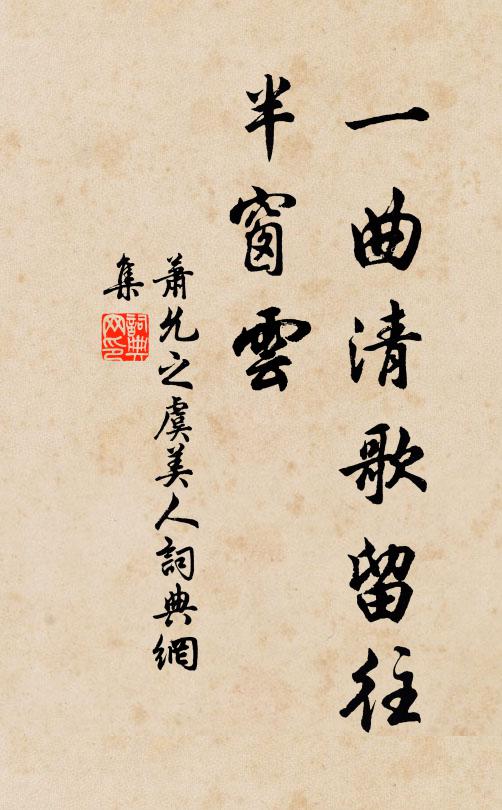 一曲清歌留往
半窗雲
蕭允之虞美人詞典網
集
詞典
网印